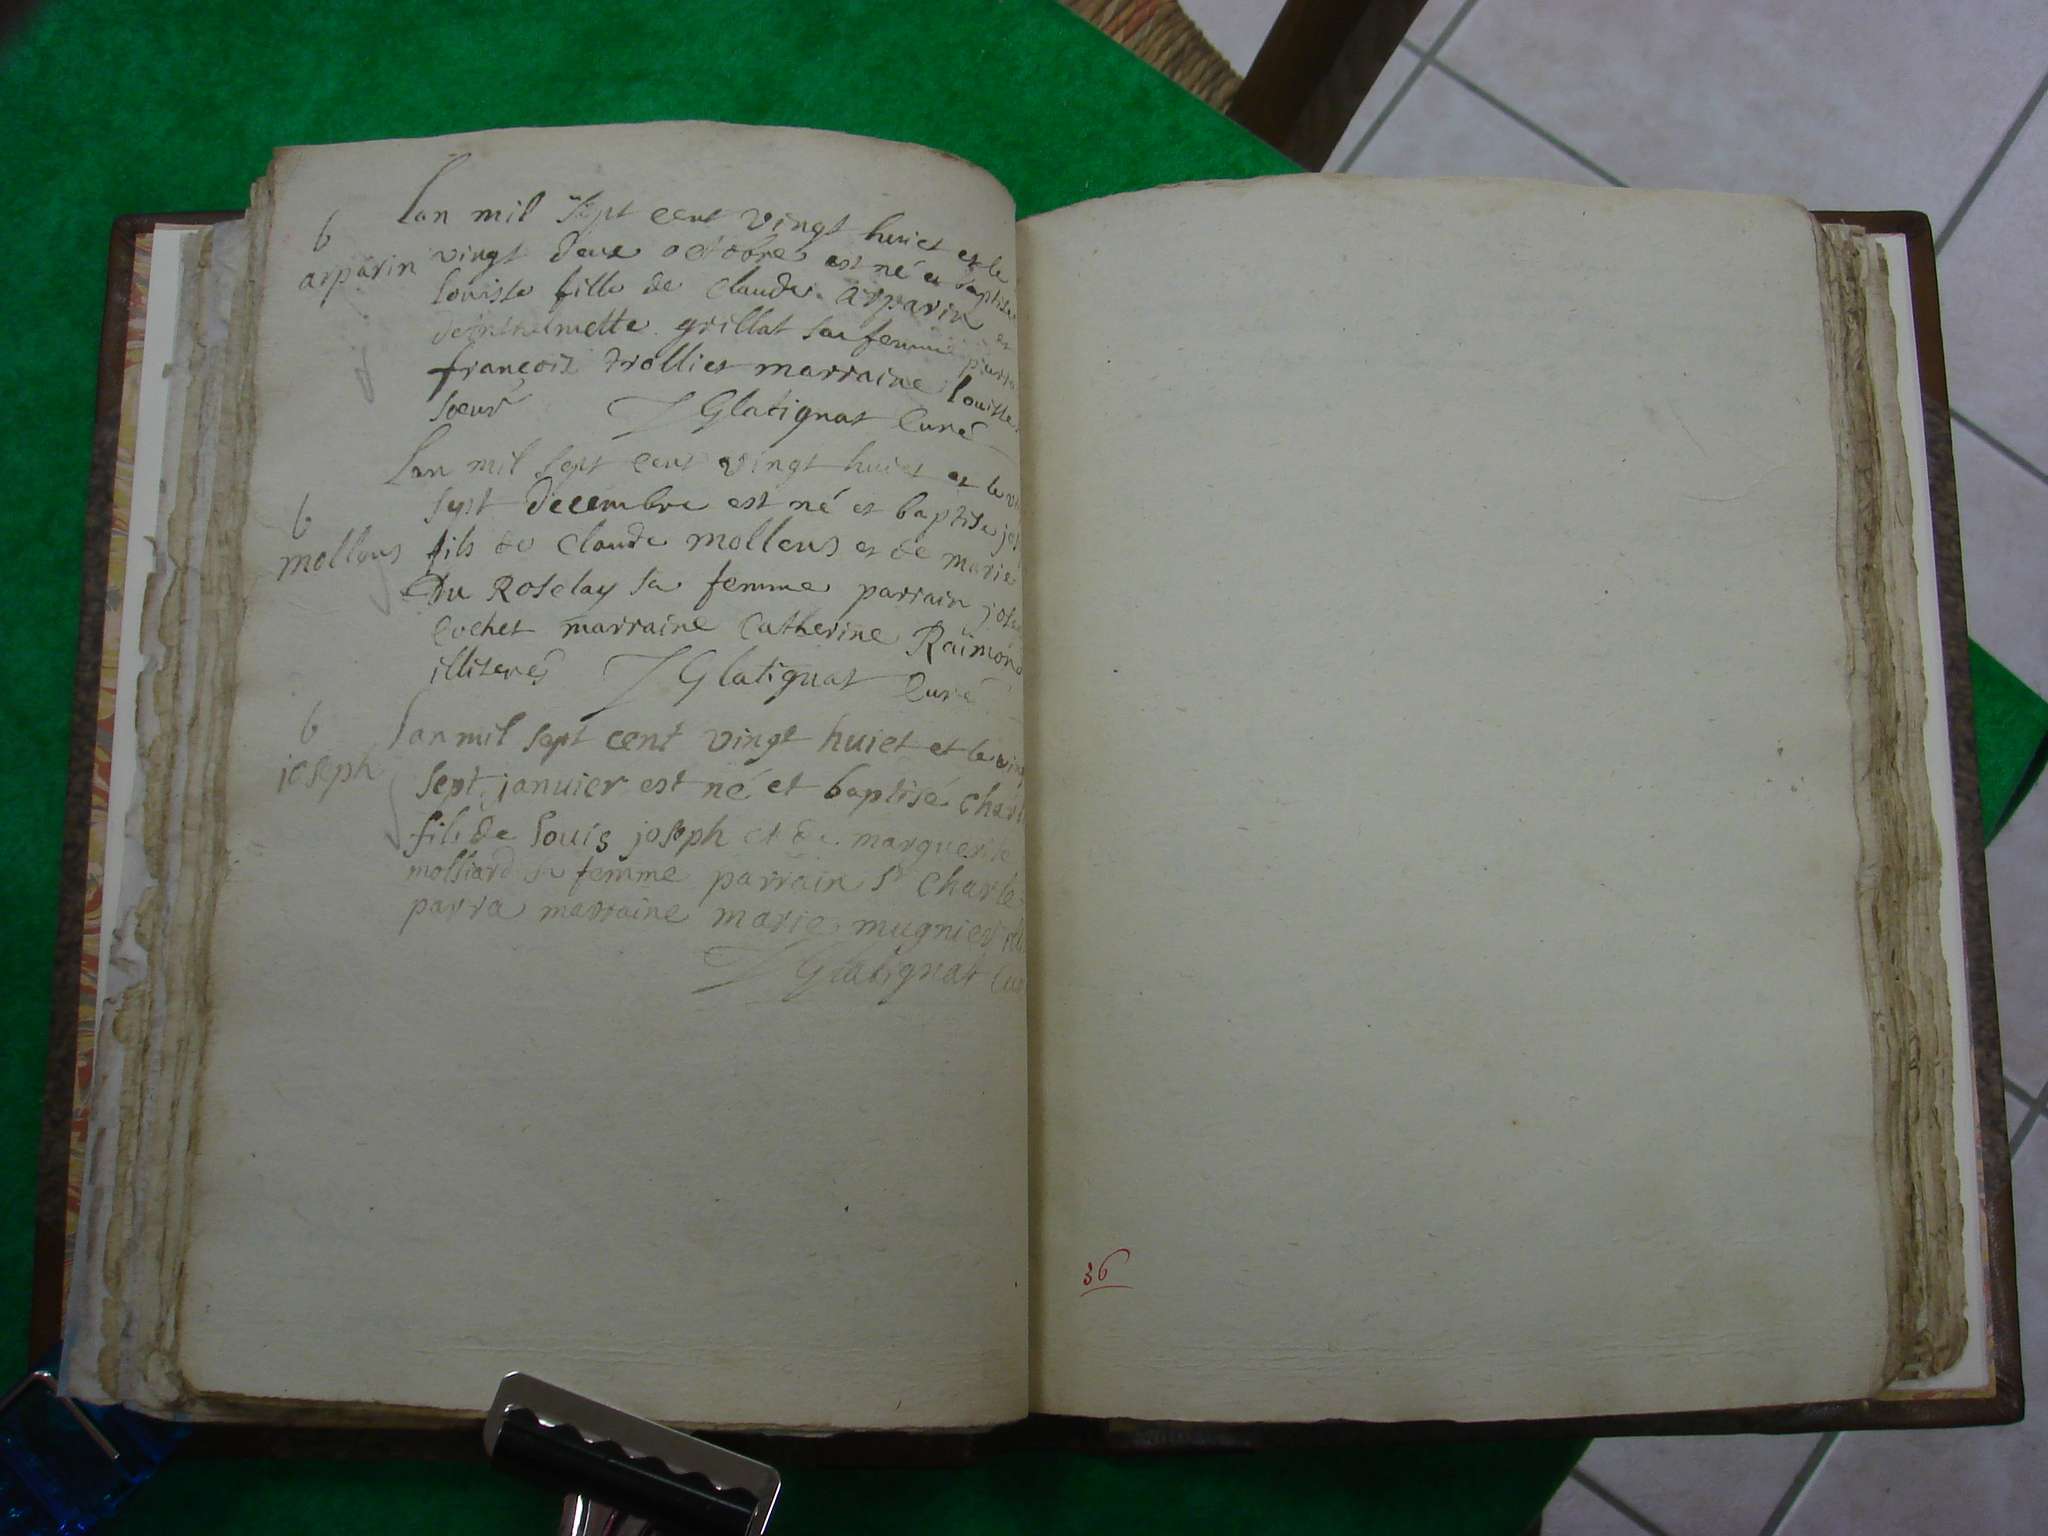 b
arparin
Lan mil sept cent vingt huict et le
vingt deux octobre est né et baptise
Louise fille de claude arparin et
grillat sa femme
françois trolliet marraine Louise
sœur J Glatignat Curé
b
mollens
Lan mil sept cent vingt huict et le
sept decembre est né et baptise jos
fils de claude mollens et de marie
Du Roselay sa femme parrain jose
Cochet marraine Catherine Raimond
illiteres J Glatignat Curé
b
joseph
Lan mil sept cent vingt huict et le ving
sept janvier est né et baptisé charl
fils de Louis joseph et de marguerite
molliard sa femme parrain Sr Charle
parra marraine marie mugnier
J Glatignat Cur
36